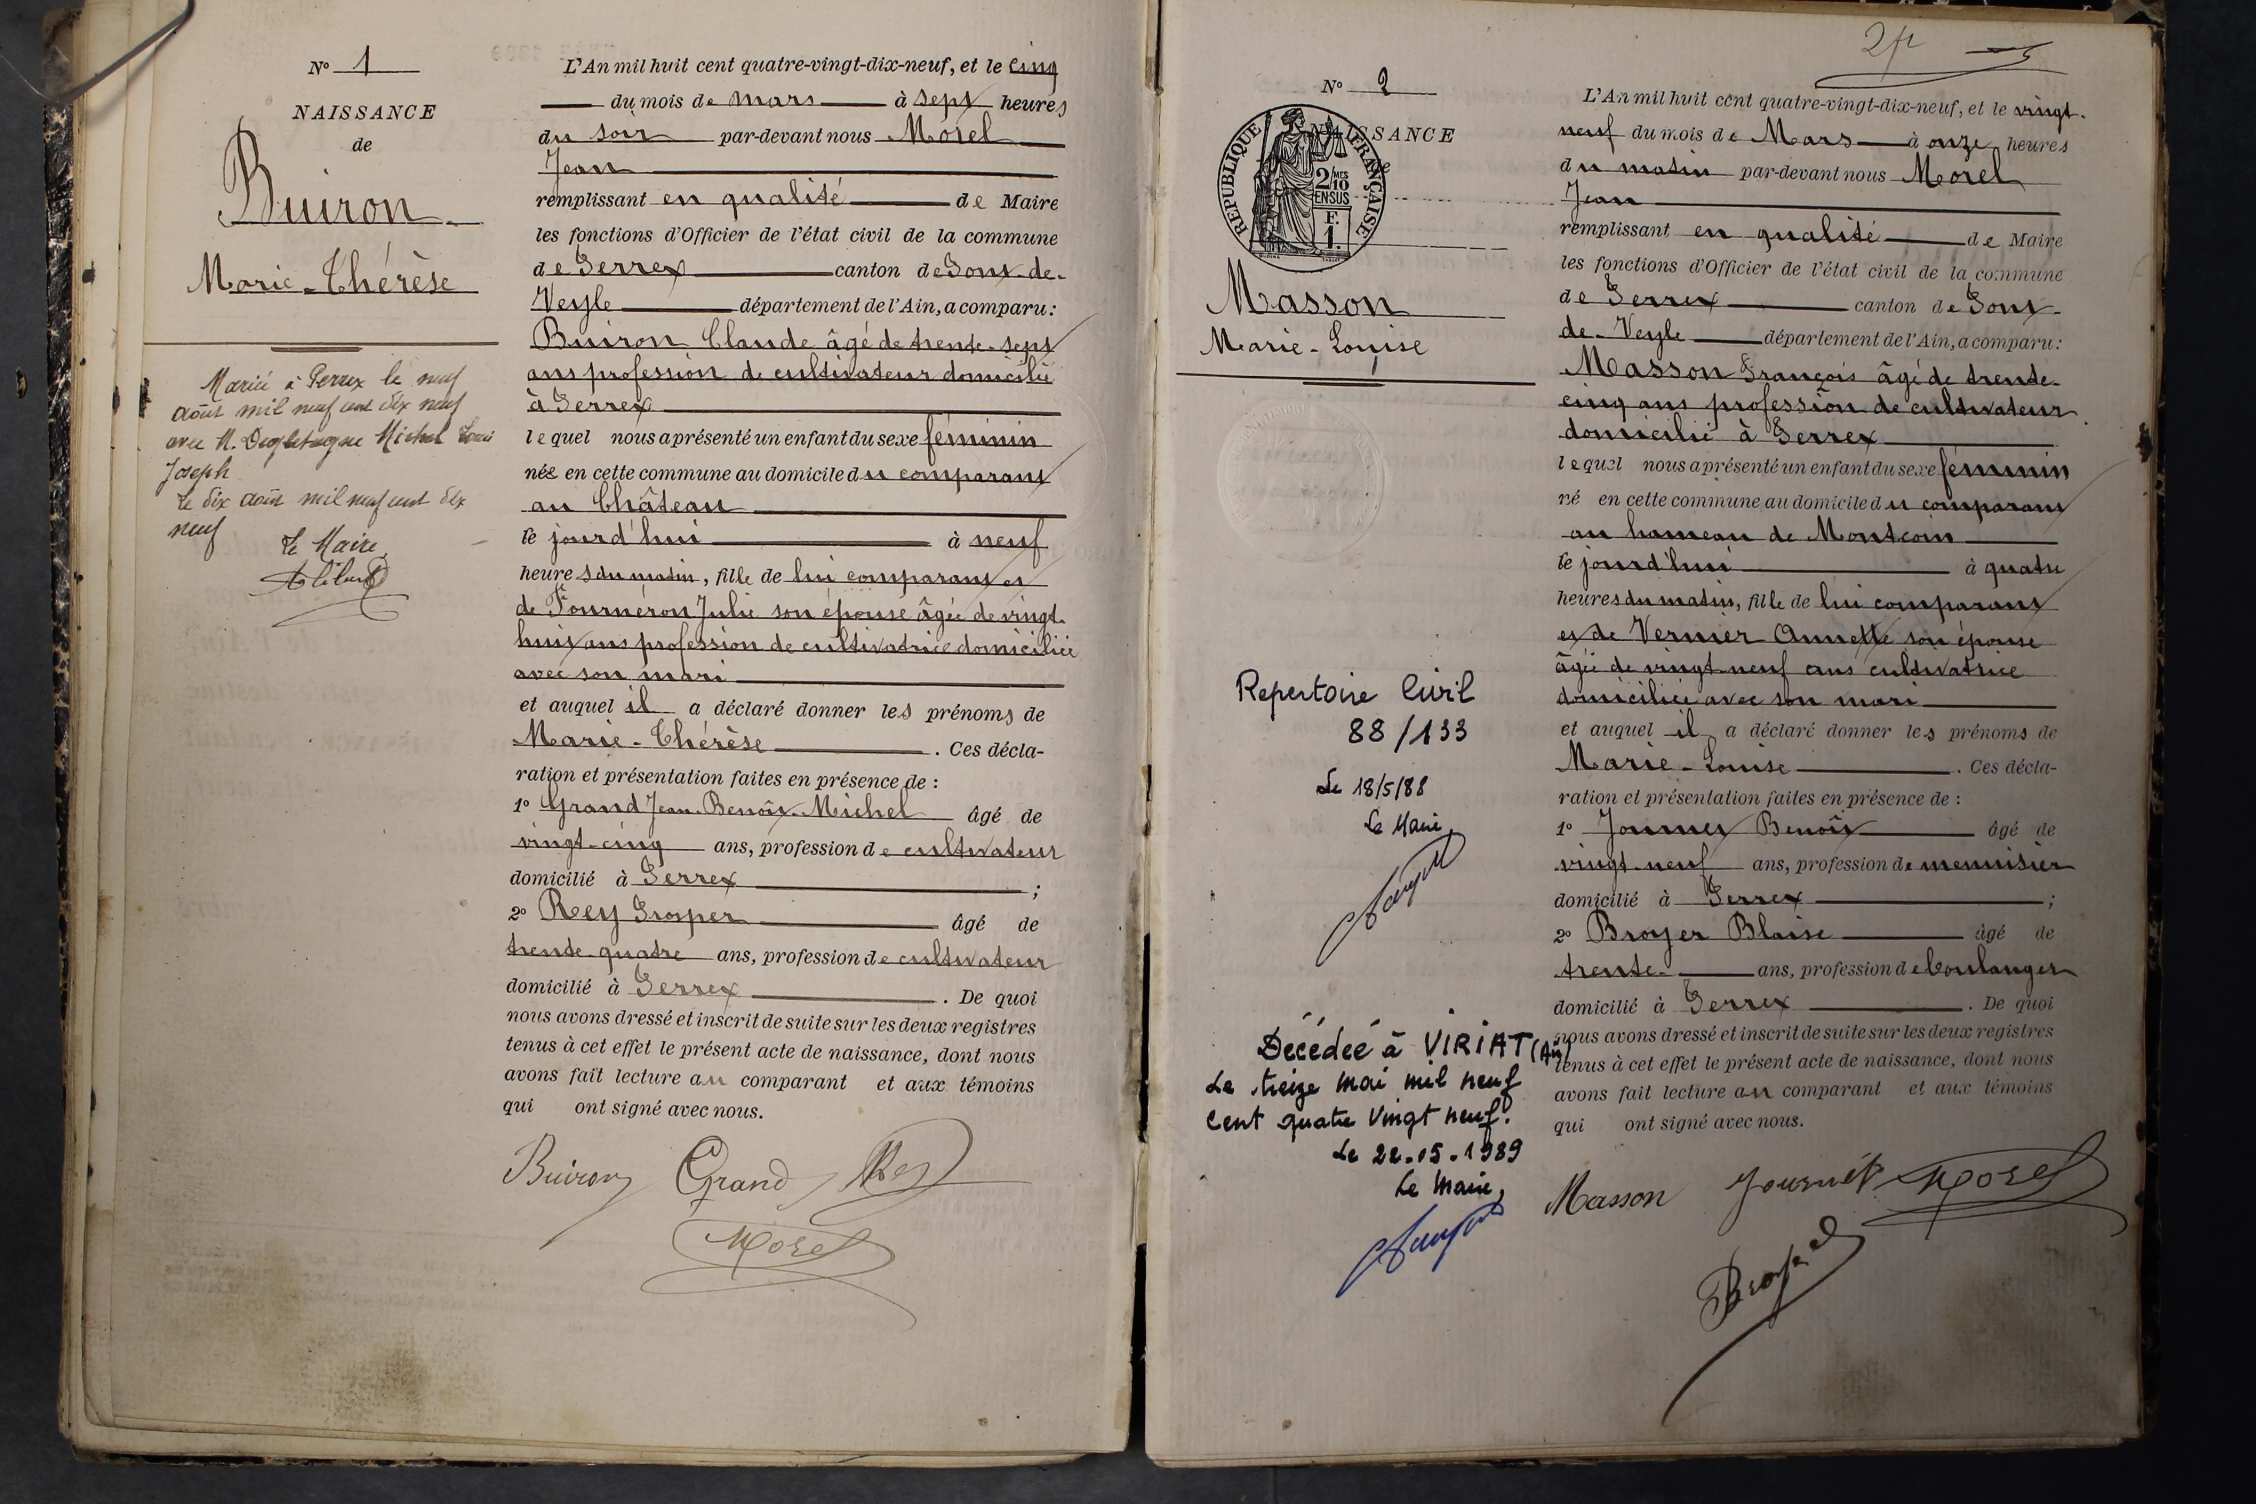 N° 1
NAISSANCE
de
Buiron
Marie-Thérèse
Mariée à Perrex le neuf
août mil neuf cent dix neuf
avec M. Michel Louis
Joseph
Le dix août mil neuf cent dix
neuf
Le Maire,
L'An mil huit cent quatre-vingt-dix-neuf, et le cinq
du mois de mars à sept heures
du soir par-devant nous Morel
Jean
remplissant en qualité de Maire
les fonctions d'Officier de l'état civil de la commune
de Perrex canton de Pont-de-
Veyle département de l'Ain, a comparu:
Buiron Claude âgé de trente-sept
ans profession de cultivateur domicilié
à Perrex
lequel nous a présenté un enfant du sexe féminin
née en cette commune au domicile du comparant
au Château
le jourd'hui à neuf
heures du matin, fille de lui comparant et
de Fournéron Julie son épouse âgée de vingt-
huit ans profession de cultivatrice domiciliée
avec son mari
et auquel il a déclaré donner les prénoms de
Marie-Thérèse. Ces décla-
ration et présentation faites en présence de :
1° Grand Jean-Benoît-Michel âgé de
vingt-cinq ans, profession de cultivateur
domicilié à Perrex ;
2° Rey Prosper âgé de
trente-quatre ans, profession de cultivateur
domicilié à Perrex. De quoi
nous avons dressé et inscrit de suite sur les deux registres
tenus à cet effet le présent acte de naissance, dont nous
avons fait lecture au comparant et aux témoins
qui ont signé avec nous.
Buiron Grand Rey
Morel
2
N° 2
NAISSANCE
de
REPUBLIQUE FRANÇAISE
2/10 MES
EN SUS
F.
1.
Masson
Marie-Louise
Repertoire Civil
88/133
Le 18/5/88
Le Maire,
Décédée à VIRIAT (Ain)
Le treize mai mil neuf
cent quatre vingt neuf.
Le 22.05.1989
Le Maire,
L'An mil huit cent quatre-vingt-dix-neuf, et le vingt-
neuf du mois de Mars à onze heures
du matin par-devant nous Morel
Jean
remplissant en qualité de Maire
les fonctions d'Officier de l'état civil de la commune
de Perrex canton de Pont-
de-Veyle département de l'Ain, a comparu:
Masson François âgé de trente-
cinq ans profession de cultivateur
domicilié à Perrex
lequel nous a présenté un enfant du sexe féminin
né en cette commune au domicile du comparant
au hameau de Montcoin
le jourd'hui à quatre
heures du matin, fille de lui comparant
et de Vernier Annette son épouse
âgée de vingt-neuf ans cultivatrice
domiciliée avec son mari
et auquel il a déclaré donner les prénoms de
Marie-Louise. Ces décla-
ration et présentation faites en présence de :
1° Journet Benoît âgé de
vingt-neuf ans, profession de menuisier
domicilié à Perrex ;
2° Broyer Blaise âgé de
trente- ans, profession de boulanger
domicilié à Perrex. De quoi
nous avons dressé et inscrit de suite sur les deux registres
tenus à cet effet le présent acte de naissance, dont nous
avons fait lecture au comparant et aux témoins
qui ont signé avec nous.
Masson Journet Morel
Broyer